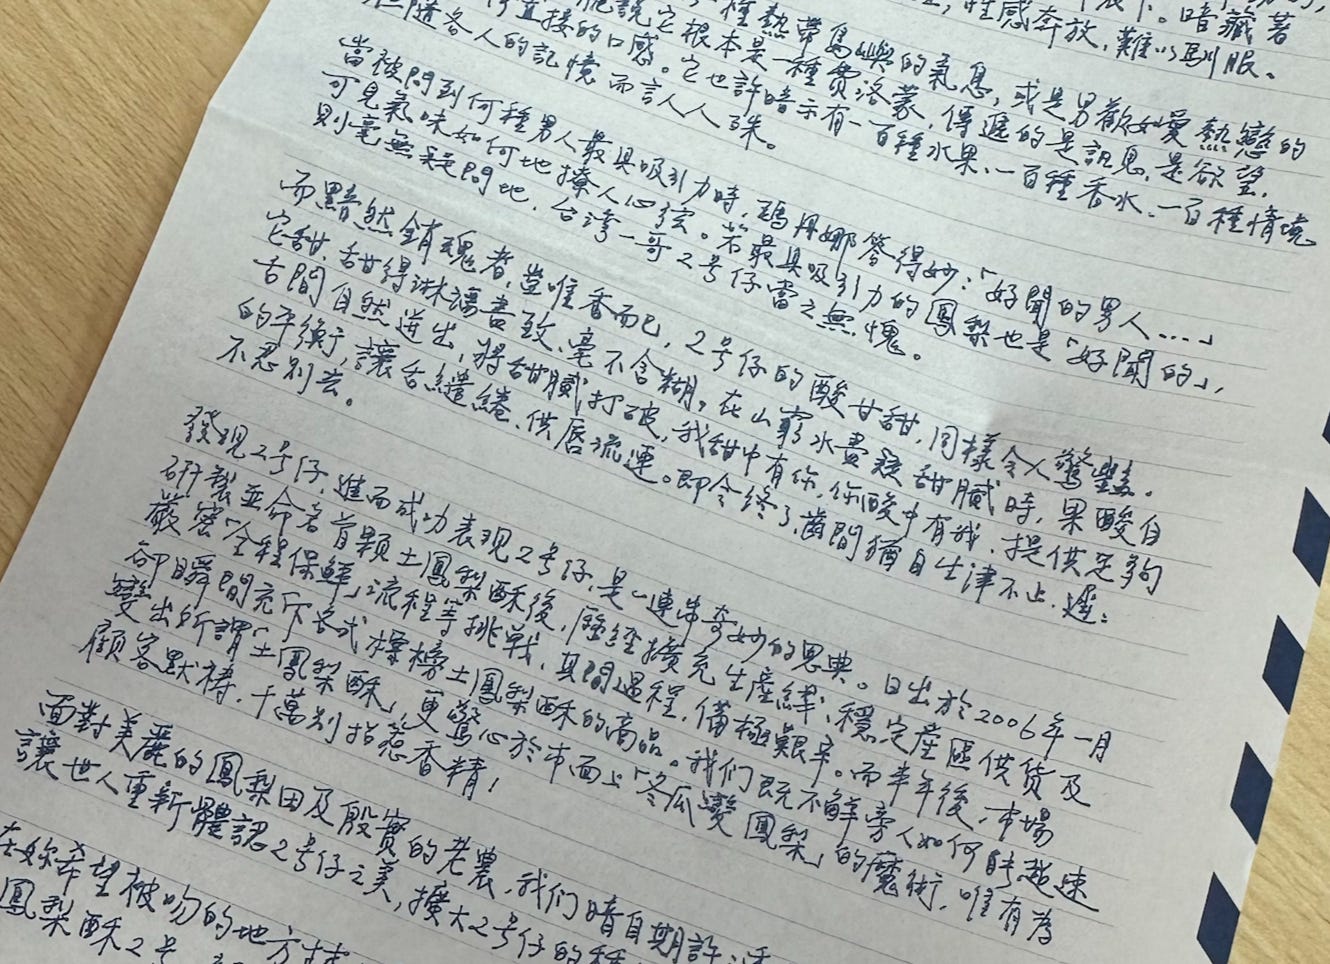 性感奔放,難以馴服。
能說它根本是一種費洛蒙,傳遞的是訊息,是欲望,
直接的口感。它也許暗示有一百種水果、一百種香水、一百種情境
隨各人的記憶而言人人殊。
當被問到何種男人最具吸引力時,瑪丹娜答得妙:「好聞的男人....」
可見氣味如何地撩人心弦。若最具吸引力的鳳梨也是「好聞的」,
則毫無疑問地,台灣一哥2号仔當之無愧。
而黯然銷魂者,豈唯香而已,2号仔的酸甘甜,同樣令人驚豔。
它甜,甜得淋漓盡致,毫不含糊。在山窮水盡疑甜膩時,果酸自
舌間自然迸出,將甜膩打破,我甜中有你,你酸中有我,提供足夠
的平衡,讓舌繾綣、供唇流連。即令終了,齒間猶自生津不止,遲遲
不忍別去。
發現2号仔,進而成功表現2号仔,是一連串奇妙的恩典。日出於2006年一月
研製並命名首顆土鳳梨酥後,歷經擴充生產線、穩定產區供貨及
嚴密「全程保鮮」流程等挑戰,其間過程,備極艱辛。而半年後,市場
卻瞬間充斥各式標榜土鳳梨酥的商品。我們既不解旁人如何能超速
變出所謂「土鳳梨酥」,更驚心於市面上「冬瓜變鳳梨」的魔術,唯有為
顧客默禱,千萬別招惹香精!
面對美麗的鳳梨田及殷實的老農,我們暗自期許:
讓世人重新體認2号仔之美,擴大2号仔的種
在妳希望被吻的地方
鳳梨酥2号